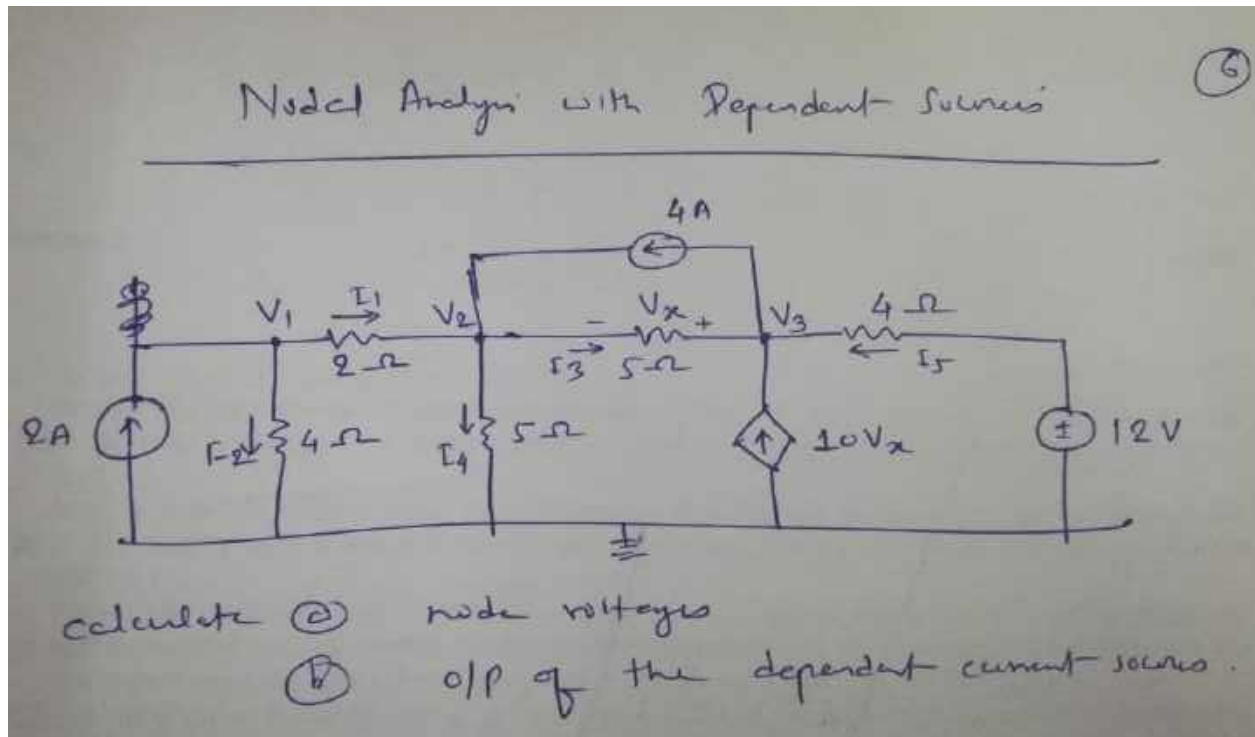 6
Nodal Analysis with Dependent Sources
4A
V1 I1 V2 - Vx + V3 4Ω
2Ω I3 5Ω I5
2A I2 4Ω I4 5Ω 10Vx ± 12V
calculate ⓐ node voltages
ⓑ o/p of the dependent current source.